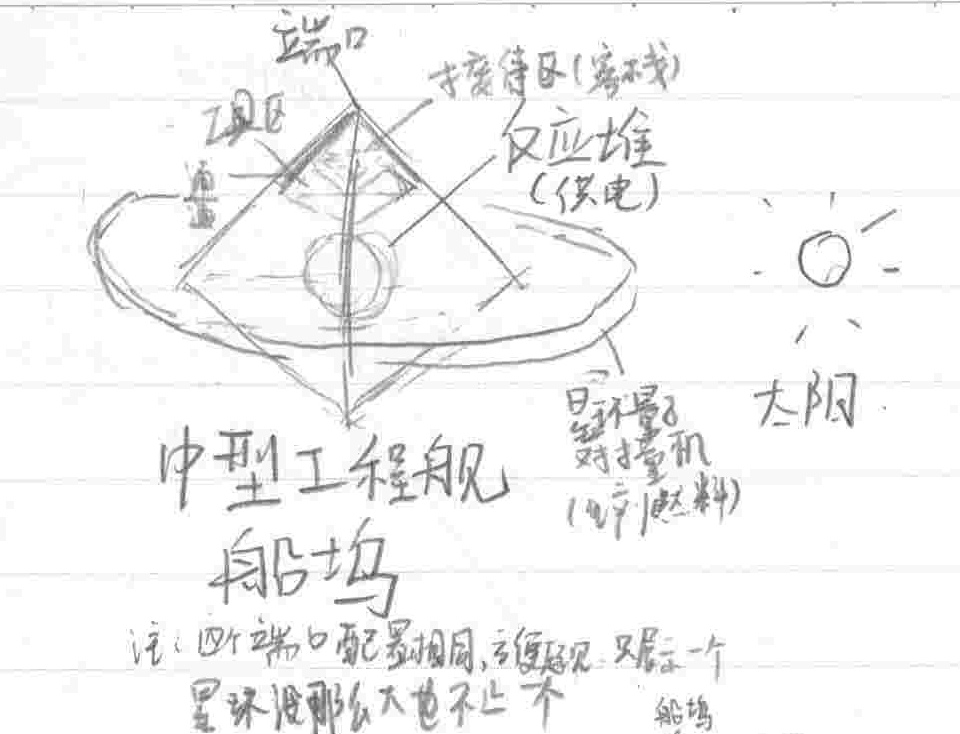 端口
接待区(客栈)
工具区
反应堆
(供电)
通道
星环量子
对撞机
(生产燃料)
太阳
中型工程舰
船坞
注:四个端口配置相同,方便起见 只展示一个
星环没那么大也不止一个
船坞